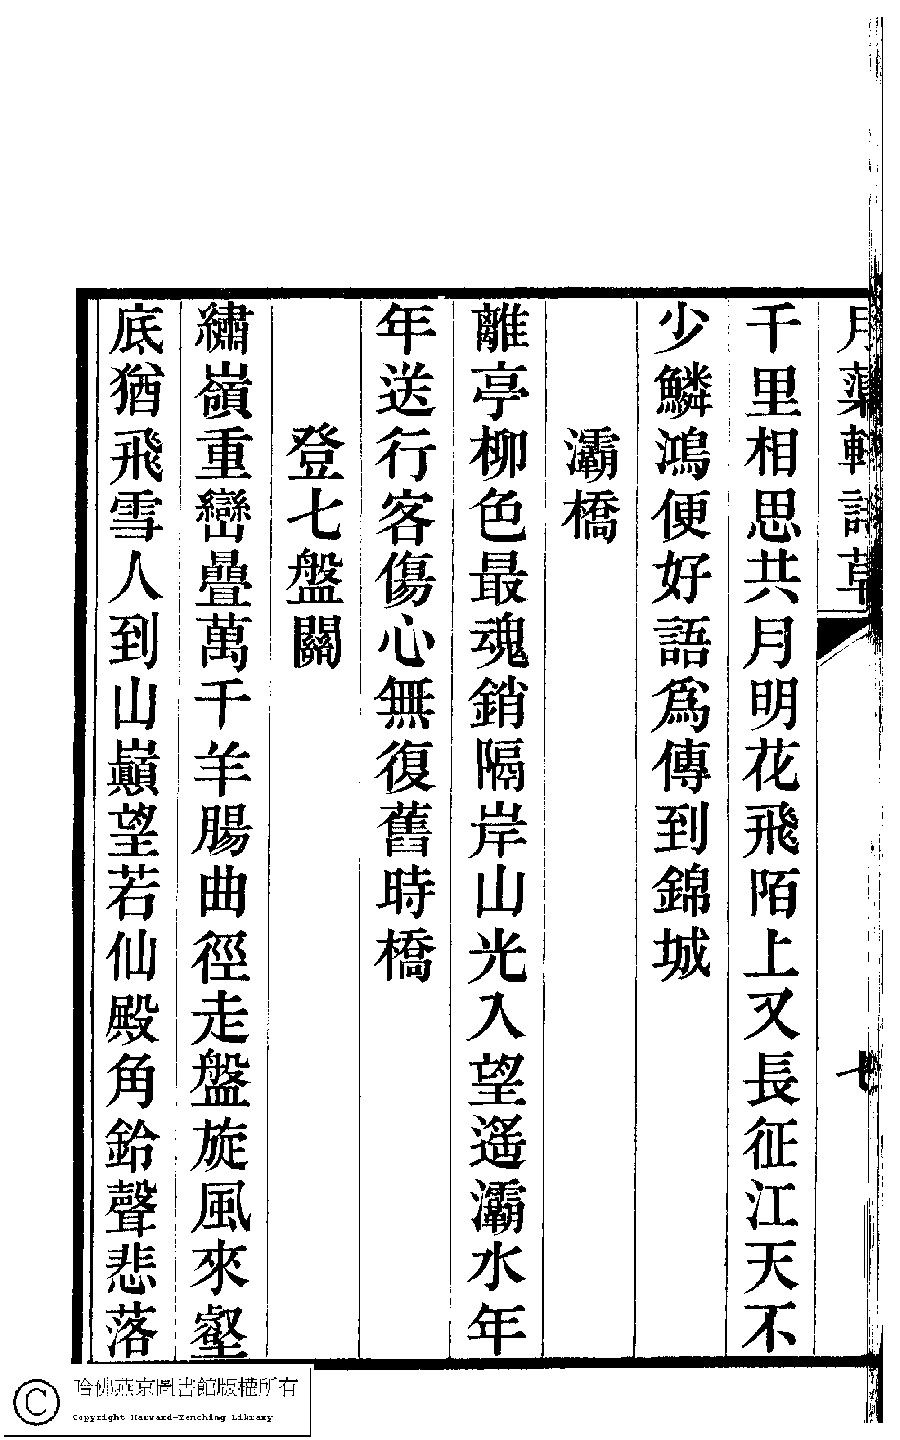 月蕖軒詩草
七
千里相思共月明花飛陌上又長征江天不
少鱗鴻便好語為傳到錦城
灞橋
離亭柳色最魂銷隔岸山光入望遙灞水年
年送行客傷心無復舊時橋
登七盤關
繡嶺重巒疊萬千羊腸曲徑走盤旋風來壑
底猶飛雪人到山巔望若仙殿角鈴聲悲落
哈佛燕京圖書館版權所有
Copyright Harvard-Yenching Library